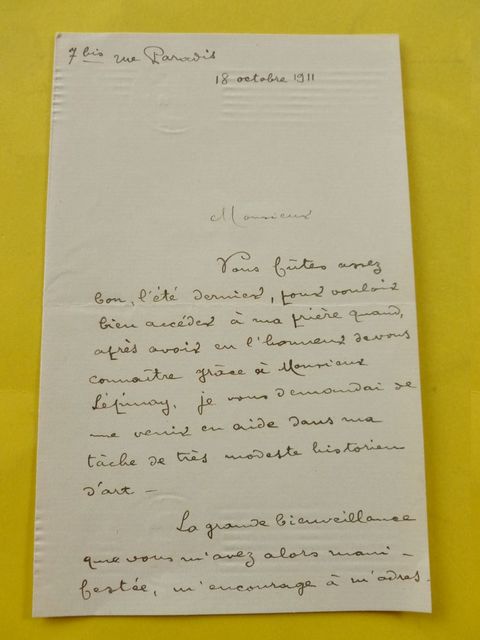 7 bis rue Paradis
18 octobre 1911
Monsieur
Vous fûtes assez
bon, l'été dernier, pour vouloir
bien accéder à ma prière quand,
après avoir eu l'honneur de vous
connaître grâce à Monsieur
Lépinay, je vous demandai de
me venir en aide dans ma
tâche de très modeste historien
d'art —
La grande bienveillance
que vous m'avez alors mani-
festée, m'encourage à m'adres-